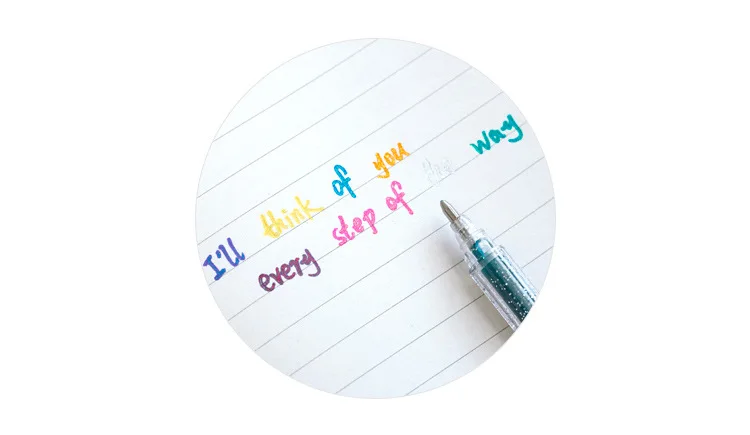 I'll think of you
every step of way